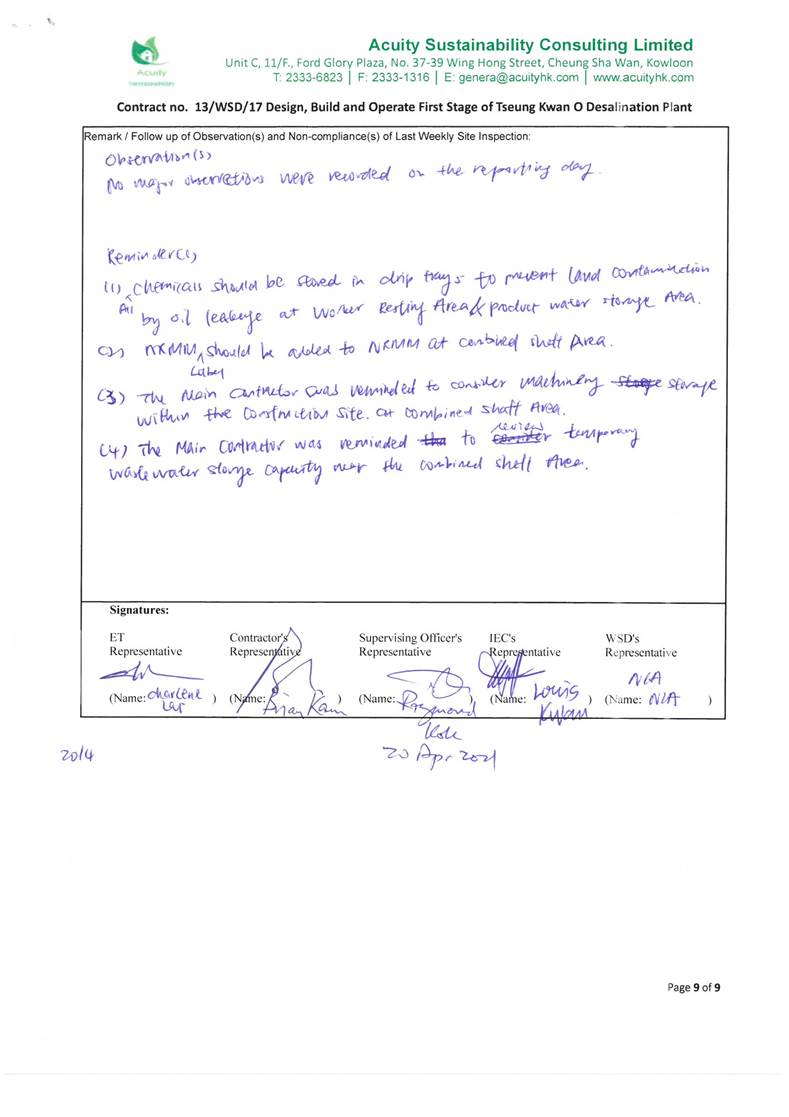 Acuity
Acuity Sustainability Consulting Limited
Unit C, 11/F., Ford Glory Plaza, No. 37-39 Wing Hong Street, Cheung Sha Wan, Kowloon
T: 2333-6823 | F: 2333-1316 | E: genera@acuityhk.com | www.acuityhk.com
Contract no. 13/WSD/17 Design, Build and Operate First Stage of Tseung Kwan O Desalination Plant
Remark / Follow up of Observation(s) and Non-compliance(s) of Last Weekly Site Inspection:
Observation(s)
No major observations were recorded on the reporting day.
Reminder(s)
(1) All Chemicals should be stored in drip trays to prevent land contamination
by oil leakage at Worker Resting Area & product water storage Area.
(2) NRMM Label should be added to NRMM at combined shaft Area.
(3) The Main Contractor was reminded to consider machinery storage
within the construction site. at combined shaft Area.
(4) The Main Contractor was reminded to review temporary
wastewater storage capacity near the combined shaft Area.
Signatures:
ET Contractor's Supervising Officer's IEC's WSD's
Representative Representative Representative Representative Representative
N/A
(Name: Charlene ) (Name: Brian Kam ) (Name: Raymond ) (Name: Louis Kwan ) (Name: N/A )
20/4
20 Apr 2021
Page 9 of 9